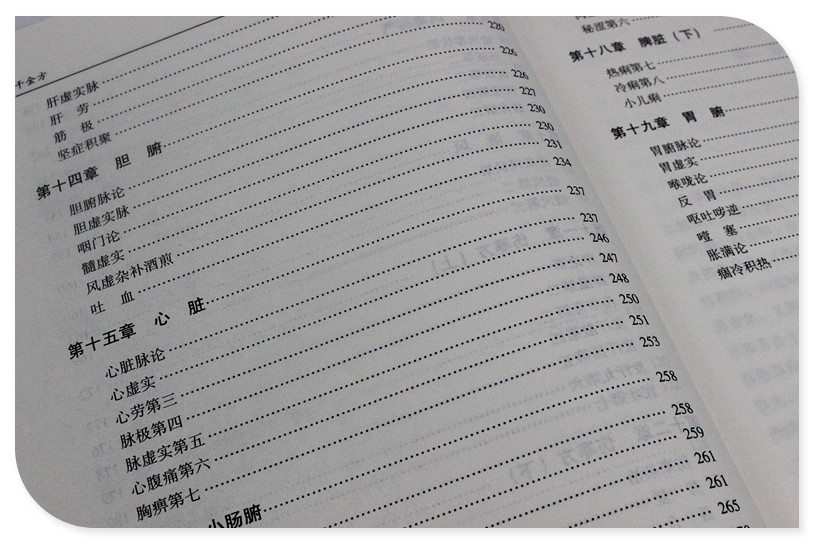 千金方
肝虚实脉
肝 劳
筋 极
坚症积聚
第十四章 胆 腑 226
胆腑脉论 226
胆虚实脉 227
咽门论 230
髓虚实 230
风虚杂补酒煎 231
吐 血 234
第十五章 心 脏 237
心脏脉论 237
心虚实 246
心劳第三 247
脉极第四 248
脉虚实第五 250
心腹痛第六 251
胸痹第七 253
小肠腑 258
258
259
261
261
265
秘涩第六
第十八章 脾脏（下）
热痢第七
冷痢第八
小儿痢
第十九章 胃 腑
胃腑脉论
胃虚实
喉咙论
反 胃
呕吐哕逆
噎 塞
胀满论
痼冷积热